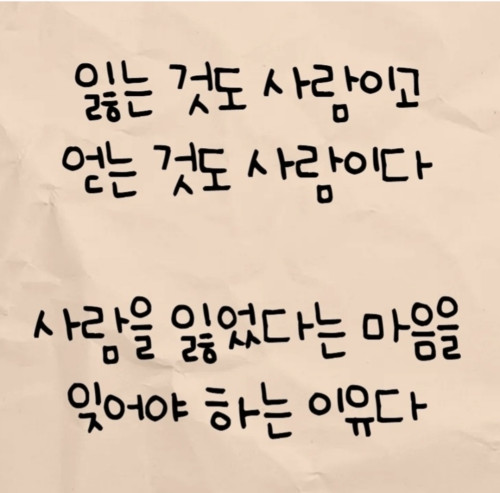 잃는 것도 사람이고
얻는 것도 사람이다
사람을 잃었다는 마음을
잊어야 하는 이유다